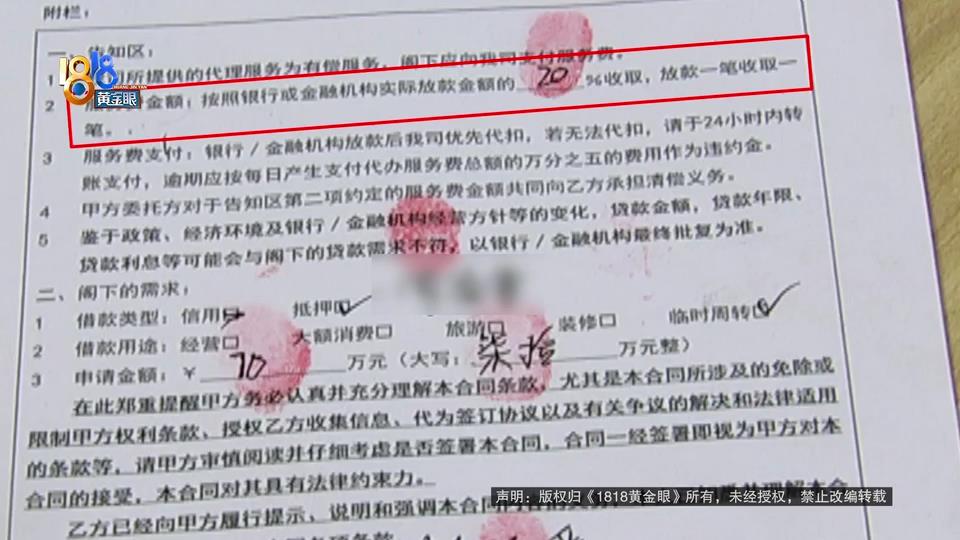 附栏：
一、告知区：
1 所提供的代理服务为有偿服务，阁下应向我司支付服务费。
1818
黄金眼
2 金额：按照银行或金融机构实际放款金额的 20 %收取，放款一笔收取一
笔。
3 服务费支付：银行/金融机构放款后我司优先代扣，若无法代扣，请于24小时内转
账支付，逾期应按每日产生支付代办服务费总额的万分之五的费用作为违约金。
4 甲方委托方对于告知区第二项约定的服务费金额共同向乙方承担清偿义务。
5 鉴于政策、经济环境及银行/金融机构经营方针等的变化，贷款金额，贷款年限、
贷款利息等可能会与阁下的贷款需求不符，以银行/金融机构最终批复为准。
二、阁下的需求：
1 借款类型：信用□ 抵押☑
2 借款用途：经营□ 大额消费□ 旅游□ 装修□ 临时周转☑
3 申请金额：￥ 70 万元（大写： 柒拾 万元整）
在此郑重提醒甲方务必认真并充分理解本合同条款，尤其是本合同所涉及的免除或
限制甲方权利条款、授权乙方收集信息、代为签订协议以及有关争议的解决和法律适用
的条款等，请甲方审慎阅读并仔细考虑是否签署本合同，合同一经签署即视为甲方对本
合同的接受，本合同对其具有法律约束力。
乙方已经向甲方履行提示、说明和强调本合同
声明：版权归《1818黄金眼》所有，未经授权，禁止改编转载